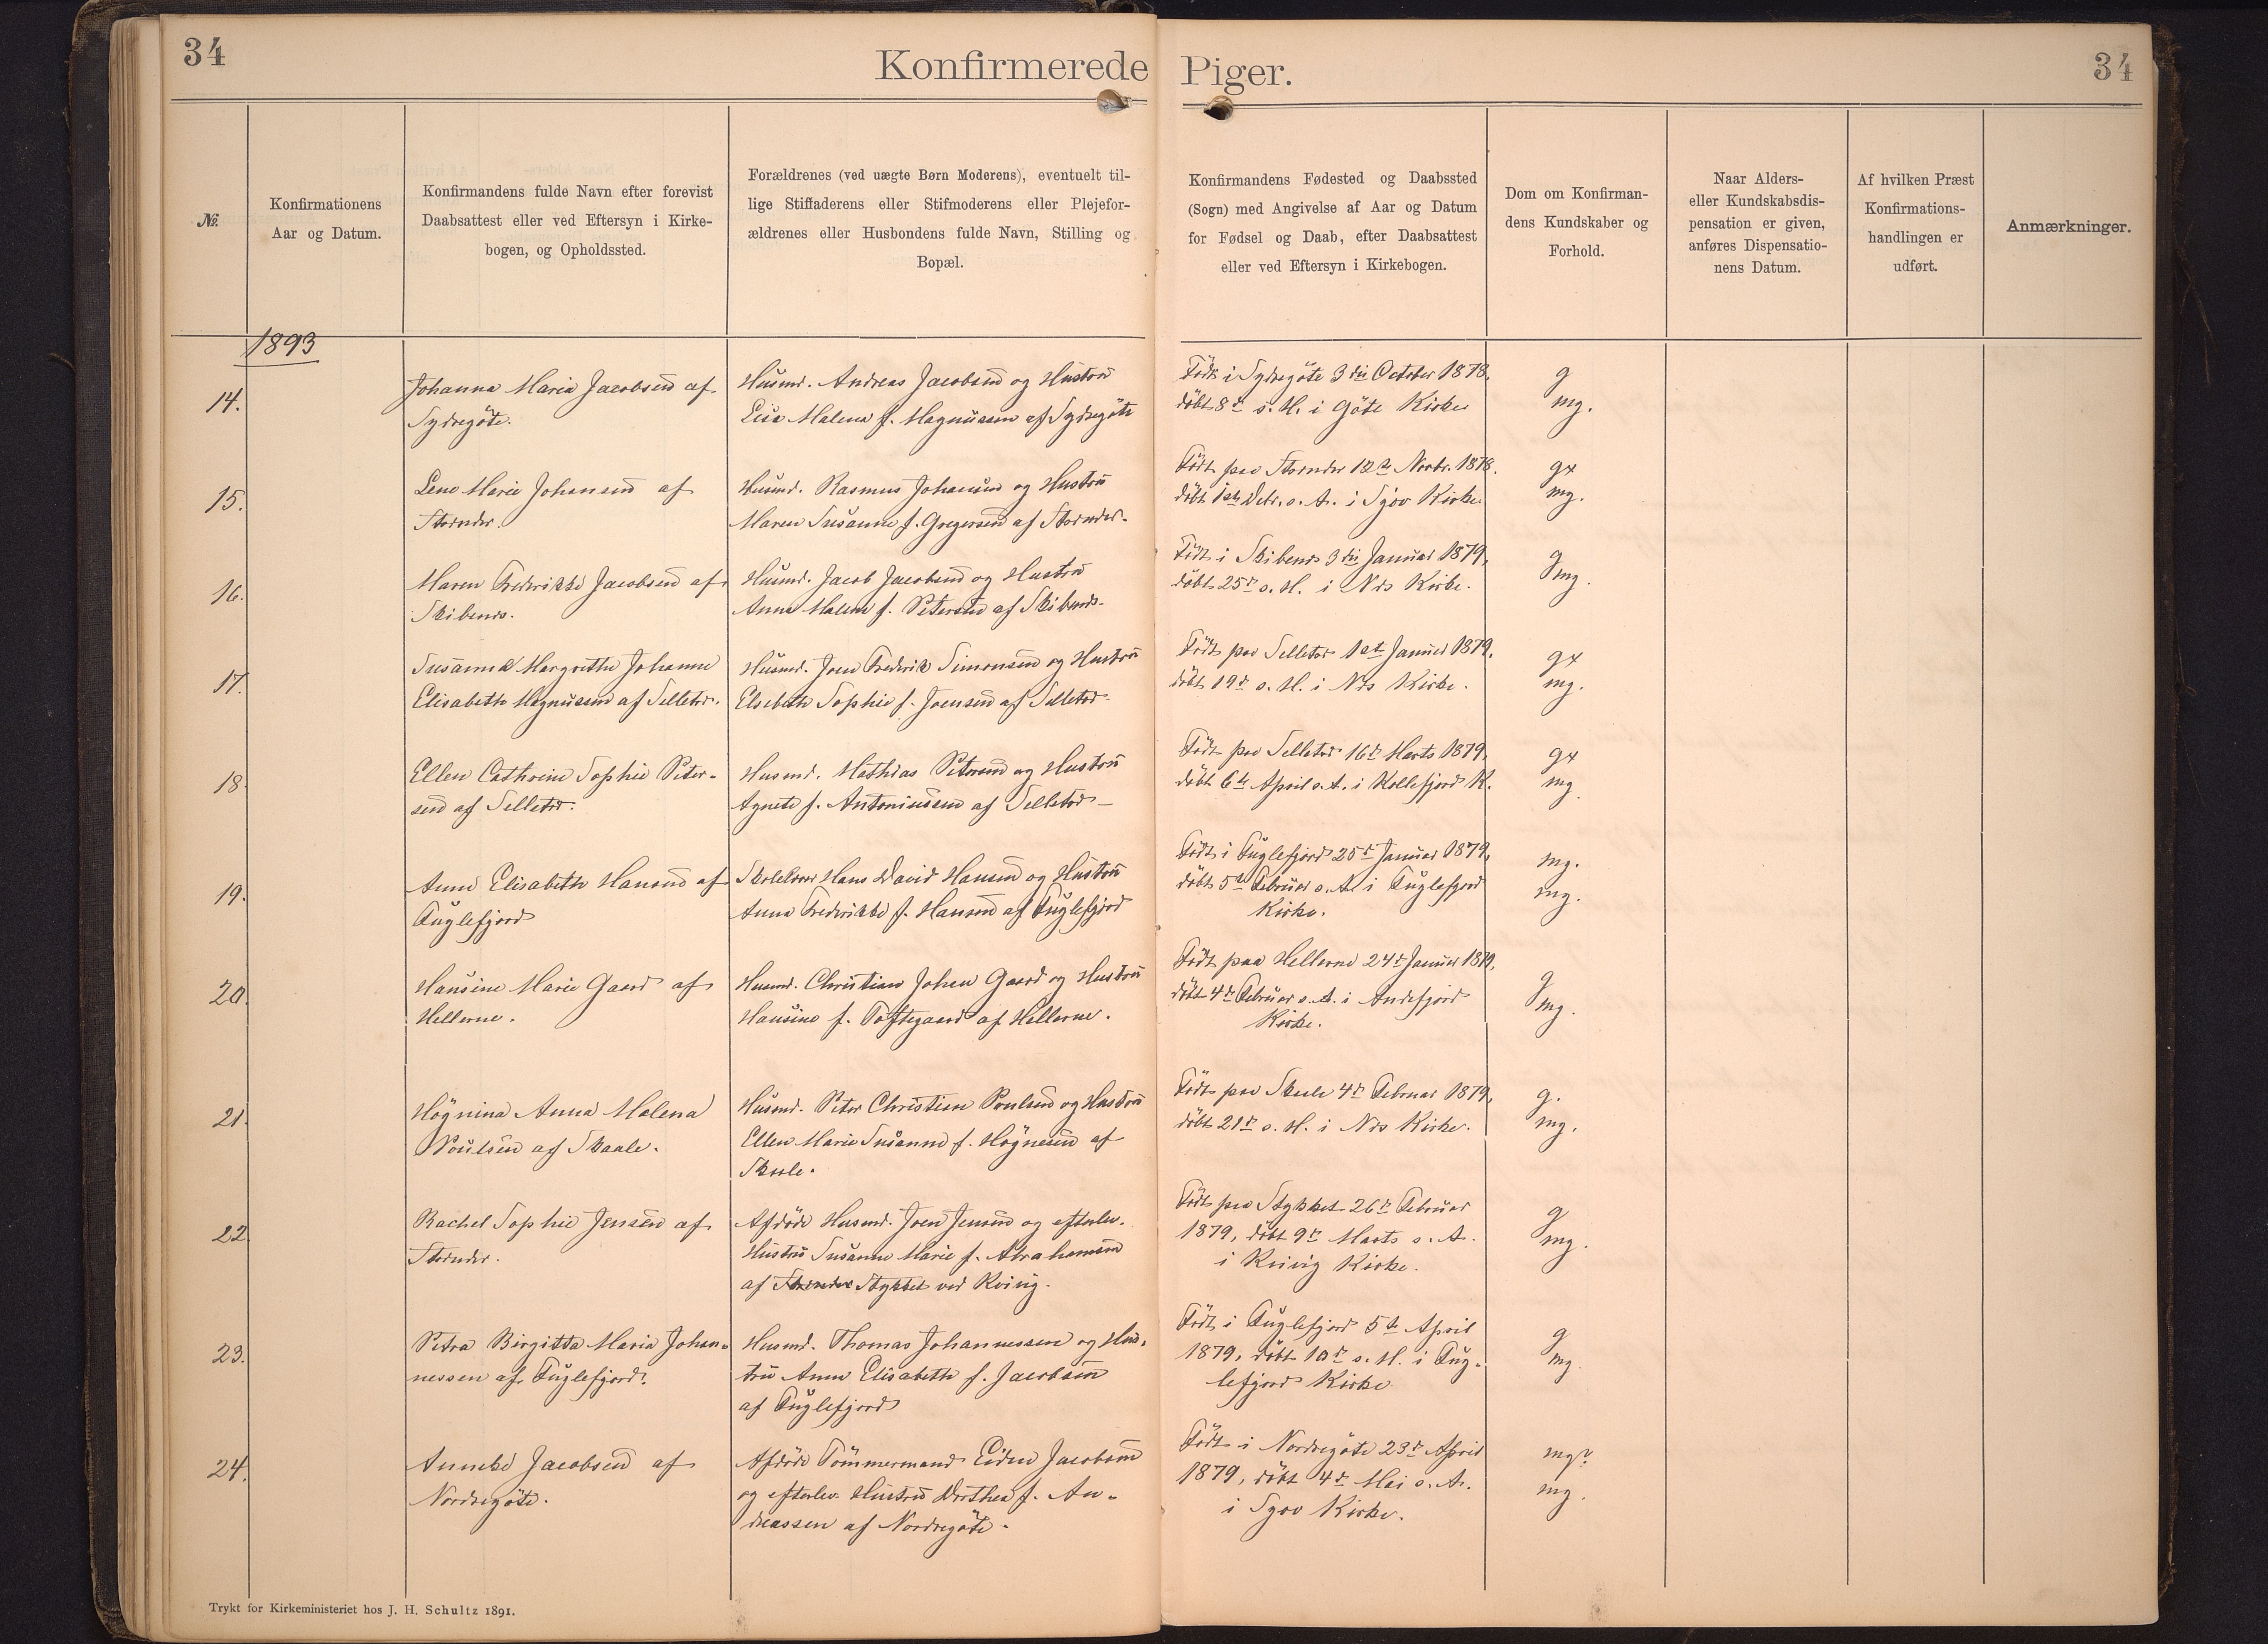 34
Konfirmerede Piger.
34
№.
Konfirmationens
Aar og Datum.
Konfirmandens fulde Navn efter forevist
Daabsattest eller ved Eftersyn i Kirke-
bogen, og Opholdssted.
Forældrenes (ved uægte Børn Moderens), eventuelt til-
lige Stiffaderens eller Stifmoderens eller Plejefor-
ældrenes eller Husbondens fulde Navn, Stilling og
Bopæl.
Konfirmandens Fødested og Daabssted
(Sogn) med Angivelse af Aar og Datum
for Fødsel og Daab, efter Daabsattest
eller ved Eftersyn i Kirkebogen.
Dom om Konfirman-
dens Kundskaber og
Forhold.
Naar Alders-
eller Kundskabsdis-
pensation er given,
anføres Dispensatio-
nens Datum.
Af hvilken Præst
Konfirmations-
handlingen er
udført.
Anmærkninger.
1893
14.
Johanna Maria Jacobsen af
Sydregöte.
Husmd. Andreas Jacobsen og Hustru
Malena f. Magnussen af Sydregöte
Födt i Sydregöte 3die October 1878,
döbt 8d s. M. i Göte Kirke
g
mg.
15.
Lene Marie Johansen af
Strender.
Husmd. Rasmus Johansen og Hustru
Maren Susanne f. Gregersen af Strender.
Födt paa Strender 12te Novbr. 1878.
döbt 1ste Decbr. s. A. i Sjov Kirke
gx
mg.
16.
Maren Frederikke Jacobsen af
Skibenes.
Husmd. Jacob Jacobsen og Hustru
Anne Malene f. Petersen af Skibenes.
Födt i Skibenes 3die Januar 1879,
döbt 25d s. M. i Næs Kirke.
g
mg.
17.
Susanna Margrethe Johanne
Elisabeth Magnussen af Selletræ.
Husmd. Joen Frederik Simonsen og Hustru
Elsebeth Sophie f. Joensen af Selletræ
Födt paa Selletræ 1ste Januar 1879.
döbt 19d s. M. i Næs Kirke.
gx
mg.
18.
Ellen Cathrine Sophie Peter-
sen af Selletræ.
Husmd. Mathias Petersen og Hustru
Agnete f. Antoniussen af Selletræ –
Födt paa Selletræ 16d Marts 1879,
döbt 6te April s. A. i Kollefjord K.
gx
mg.
19.
Anne Elisabeth Hansen af
Fuglefjord
Skolelærer Hans David Hansen og Hustru
Anna Frederikke f. Hansen af Fuglefjord
Födt i Fuglefjord 25d Januar 1879,
döbt 5te Februar s. A. i Fuglefjord
Kirke.
mg.
mg.
20.
Hansine Marie Gaard af
Hellerne.
Husmd. Christian Johan Gaard og Hustru
Hansine f. Toftegaard af Hellerne.
Födt paa Hellerne 24d Januar 1879,
döbt 4d Februar s. A. i Andefjord
Kirke.
g
mg.
21.
Högnina Anna Malena
Poulsen af Skaale.
Husmd. Peter Christian Poulsen og Hustru
Ellen Marie Susanne f. Högnesen af
Skaale.
Födt paa Skaale 4d Februar 1879,
döbt 21d s. M. i Næs Kirke.
g.
mg.
22.
Rachel Sophie Jensen af
Strender.
Afdöde Husmd. Joen Jensen og efterlev.
Hustru Susanne Marie f. Abrahamsen
af Strender Stykket ved Kvivig.
Födt paa Stykket 26d Februar
1879, döbt 9d Marts s. A.
i Kvivig Kirke.
g
mg.
23.
Petra Birgitta Maria Johan-
nessen af Fuglefjord.
Husmd. Thomas Johannessen og Hus-
tru Anne Elisabeth f. Jacobsen
af Fuglefjord
Födt i Fuglefjord 5te April
1879, döbt 10d s. M. i Fug-
lefjord Kirke
g
mg.
24.
Anneke Jacobsen af
Nordregöte.
Afdöde Tömmermand Jacobsen
og efterlev. Hustru Dorthea f. An-
dreassen af Nordregöte.
Födt i Nordregöte 23d April
1879, döbt 4d Mai s. A.
i Sjov Kirke.
mg?
mg.
Trykt for Kirkeministeriet hos J. H. Schultz 1891.